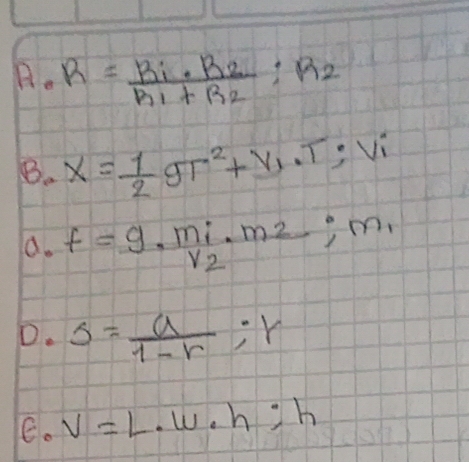 A. R = Ri . R2 / R1 + R2 ; R2
B. X = 1/2 gT² + Vi . T ; Vi
C. f = g . mi . m2 / r2 ; m1
D. S = a / 1 - r ; r
E. V = L . W . h ; h